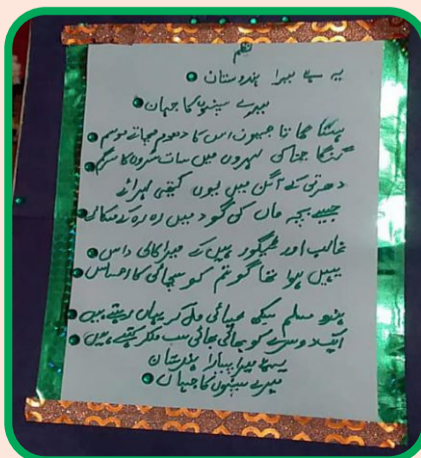 نظم
یہ ہے میرا ہندوستان
میرے سپنوں کا جہان
ہنستا گاتا جیون اس کا دھوم مچاتے موسم
گنگا جمنا کی لہروں میں سات سروں کا سرگم
دھرتی کے آنگن میں یوں کھیتی لہرائے
جیسے بچہ ماں کی گود میں رہ رہ کے
غالب اور ٹیگور یہیں کے میرا کالی داس
یہیں ہوا تھا گوتم کو سچائی کا احساس
ہندو مسلم سکھ عیسائی مل کر یہاں رہتے ہیں
ایک دوسرے کو بھائی بھائی سب ملکر کہتے ہیں
یہ ہے میرا پیارا ہندوستان
میرے سپنوں کا جہان